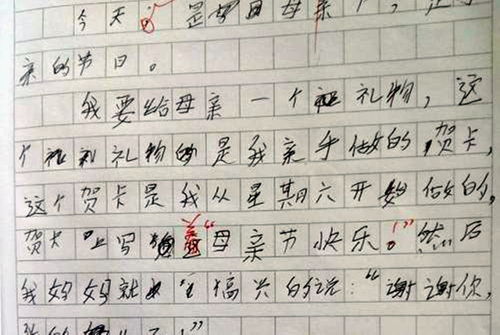 今天是母亲
亲的节日。
我要给母亲一个礼物，这
个礼物是我亲手做的贺卡，
这个贺卡是我从星期六开始做的，
贺卡上写着“母亲节快乐！”然后
我妈妈就高兴的说：“谢谢你，